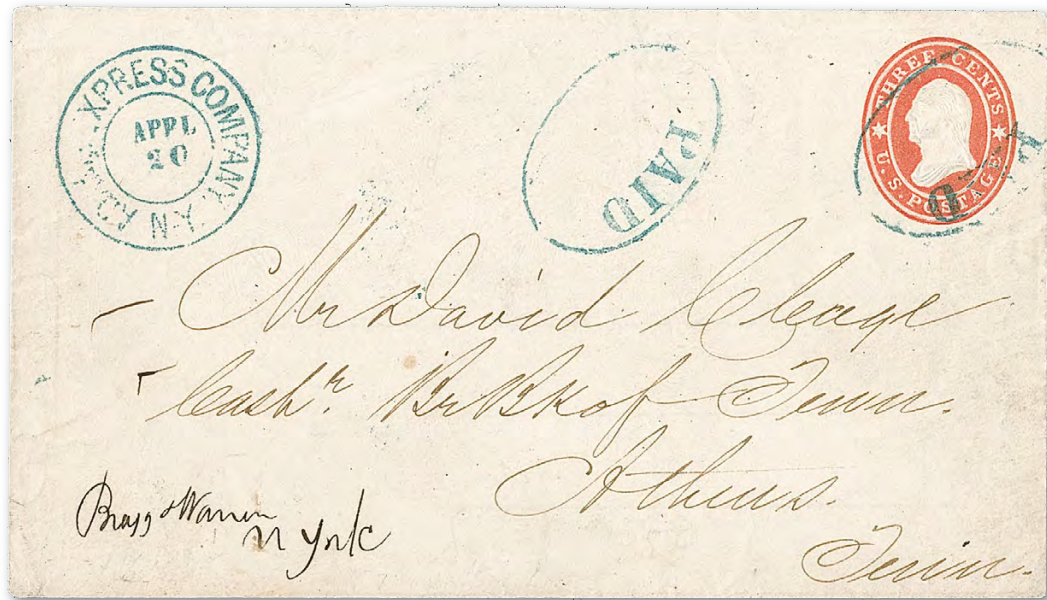 XPRESS COMPANY. N-Y.
APPL
20
PAID
THREE CENTS
U.S. POSTAGE
PAID
Mr David Cleage
Cashr. Br Bk of Tenn.
Athens.
Tenn.
Bragg & Warren
N York